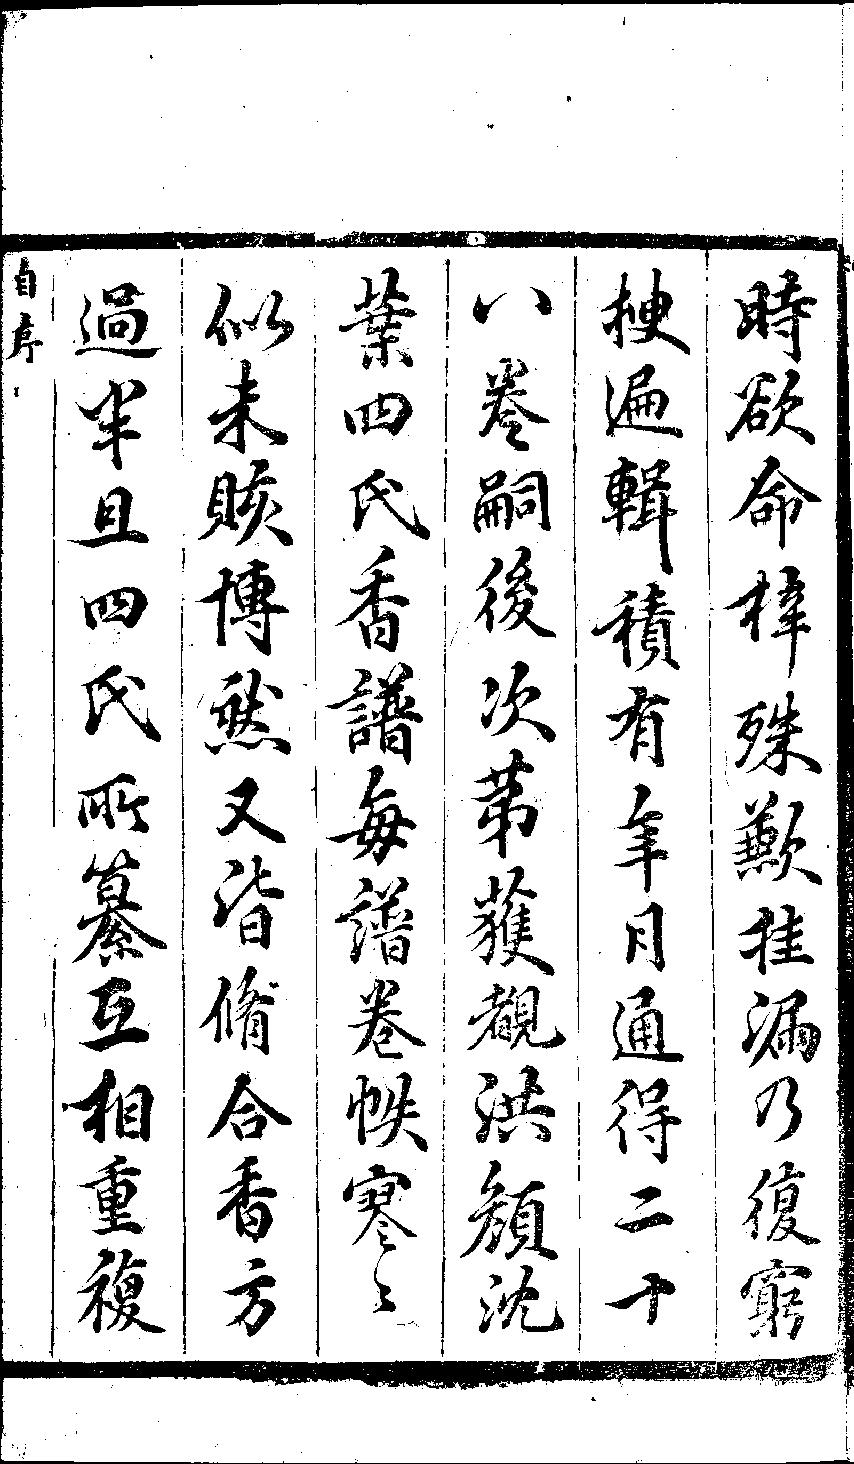 時欲命梓殊歉挂漏乃復窮
搜遍輯積有年月通得二十
八卷嗣後次第獲觀洪顏沈
葉四氏香譜每譜卷帙寥〻
似未賅博然又皆脩合香方
過半且四氏所纂互相重複
自序